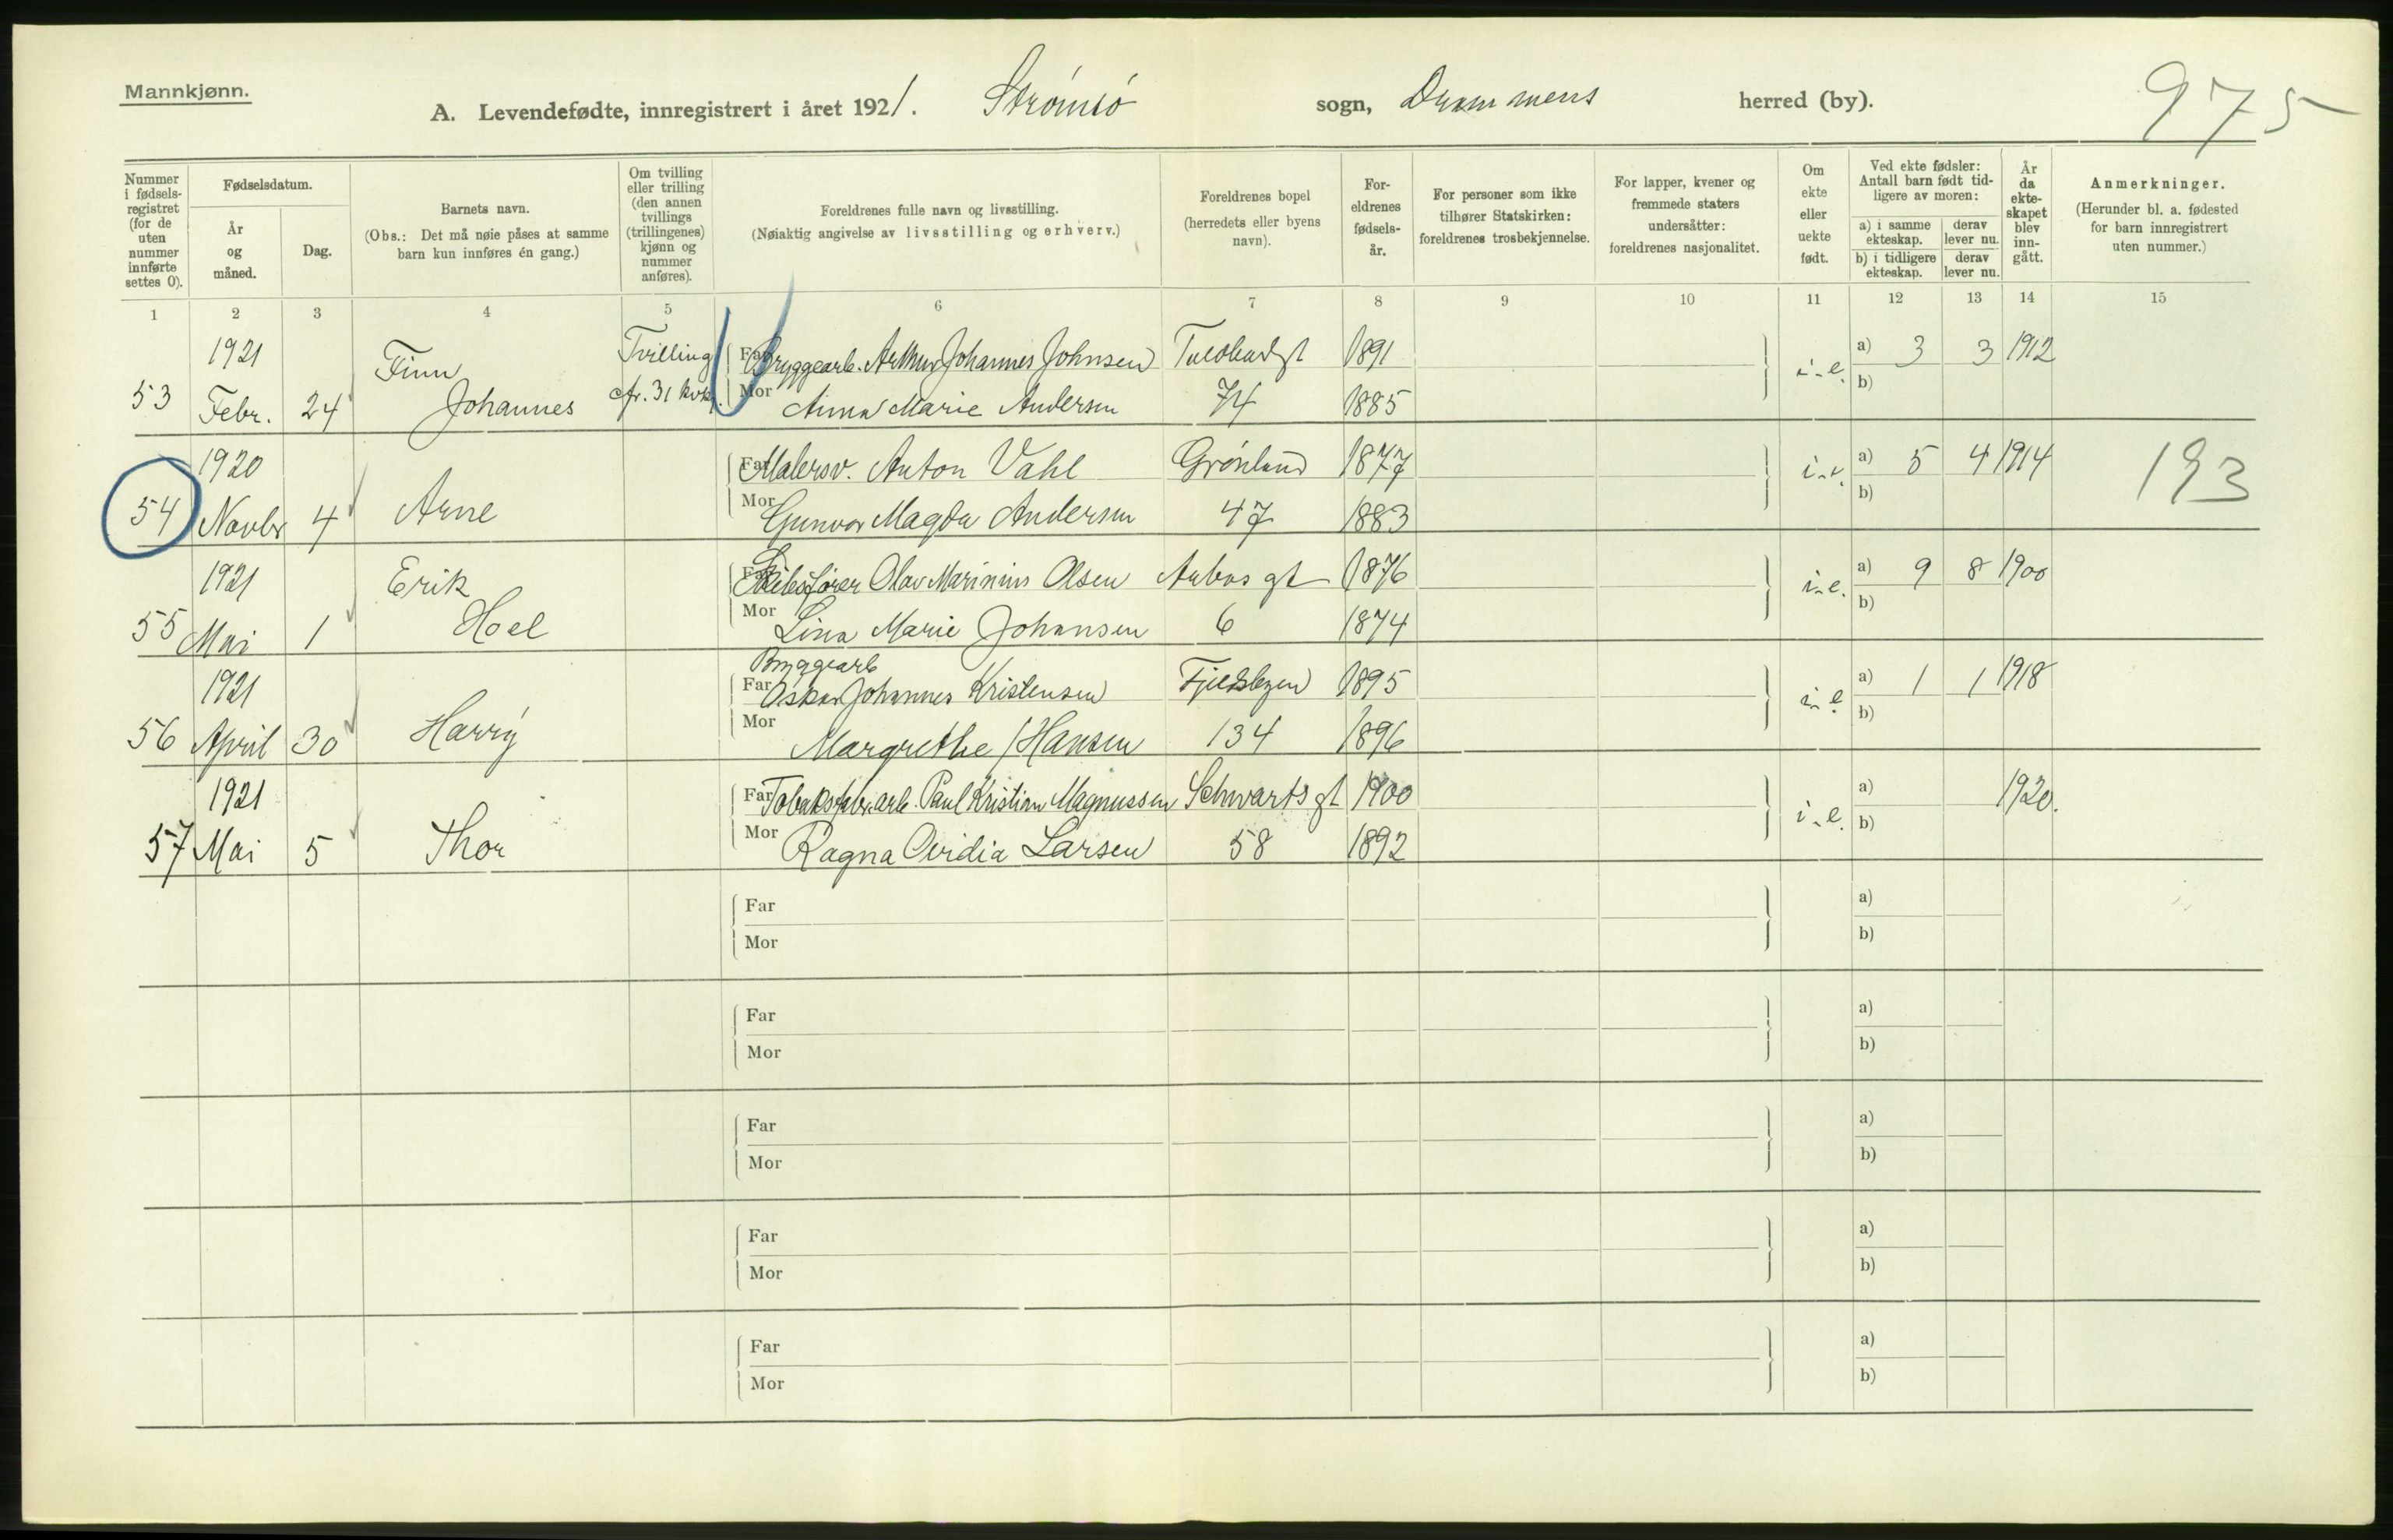 Mannkjønn.
A. Levendefødte, innregistrert i året 1921. Strømsø sogn, Drammens herred (by).
975
Nummer i fødsels-registret (for de uten nummer innførte settes 0).
Fødselsdatum.
År og måned.
Dag.
Barnets navn.
(Obs.: Det må nøie påses at samme barn kun innføres én gang.)
Om tvilling eller trilling (den annen tvillings (trillingenes) kjønn og nummer anføres).
Foreldrenes fulle navn og livsstilling.
(Nøiaktig angivelse av livsstilling og erhverv.)
Foreldrenes bopel (herredets eller byens navn).
For-eldrenes fødsels-år.
For personer som ikke tilhører Statskirken: foreldrenes trosbekjennelse.
For lapper, kvener og fremmede staters undersåtter: foreldrenes nasjonalitet.
Om ekte eller uekte født.
Ved ekte fødsler: Antall barn født tid-ligere av moren:
a) i samme ekteskap.
derav lever nu.
b) i tidligere ekteskap.
derav lever nu.
År da ekte-skapet blev inn-gått.
Anmerkninger.
(Herunder bl. a. fødested for barn innregistrert uten nummer.)
1 2 3 4 5 6 7 8 9 10 11 12 13 14 15
1921 Finn Tvilling Far Bryggearb. Arthur Johannes Johnsen 1891 i.e. a) 3 3 1912
53 Febr. 24 Johannes cfr. 31 kvk. Mor Anna Marie Andersen 74 1885 b)
1920 Far Malersv. Anton Vahl Grønland 1877 i.e. a) 5 4 1914 193
54 Novbr 4 Arne Mor Gunvor Magda Andersen 47 1883 b)
1921 Erik Far Skibsfører Olav Marinius Olsen gt 1876 i.e. a) 9 8 1900
55 Mai 1 Hoel Mor Lina Marie Johansen 6 1874 b)
Bryggearb
1921 Far Oskar Johannes Kristensen 1895 i.e. a) 1 1 1918
56 April 30 Harry Mor Margrethe Hansen 134 1896 b)
1921 Far Tobaksfabr.arb. Paul Kristian Magnussen Schwarts gt 1900 i.e. a) 1920.
57 Mai 5 Thor Mor Ragna Ovidia Larsen 58 1892 b)
Far a)
Mor b)
Far a)
Mor b)
Far a)
Mor b)
Far a)
Mor b)
Far a)
Mor b)